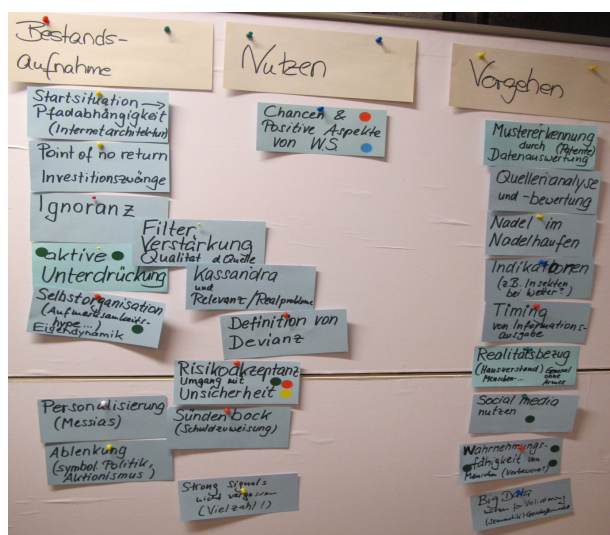 Bestands-
aufnahme
Startsituation →
Pfadabhängigkeit
(Internetarchitektur)
Point of no return
Investitionszwänge
Ignoranz
Filter
Verstärkung
Qualität d. Quelle
aktive
Unterdrückung
Kassandra
und
Relevanz/Realprobleme
Selbstorganisation
(Aufmerksamkeits-
hype...)
Eigendynamik
Definition von
Devianz
Risikoakzeptanz
Umgang mit
Unsicherheit
Personalisierung
(Messias)
Sündenbock
(Schuldzuweisung)
Ablenkung
(symbol. Politik,
Aktionismus)
Strong Signals
nicht vergessen
(Vielzahl!)
Nutzen
Chancen &
Positive Aspekte
von W.S.
Vorgehen
Mustererkennung
durch (Patente)
Datenauswertung
Quellenanalyse
und -bewertung
Nadel im
Nadelhaufen
Indikatoren
(z.B. Insekten
bei Wetter?)
Timing
von Informations-
ausgabe
Realitätsbezug
(Hausverstand) General
Menschen... ohne
Armee
Social media
nutzen
Wahrnehmungs-
fähigkeit von
Menschen (verbessern)
Big Data
für Validierung
(Semantik)